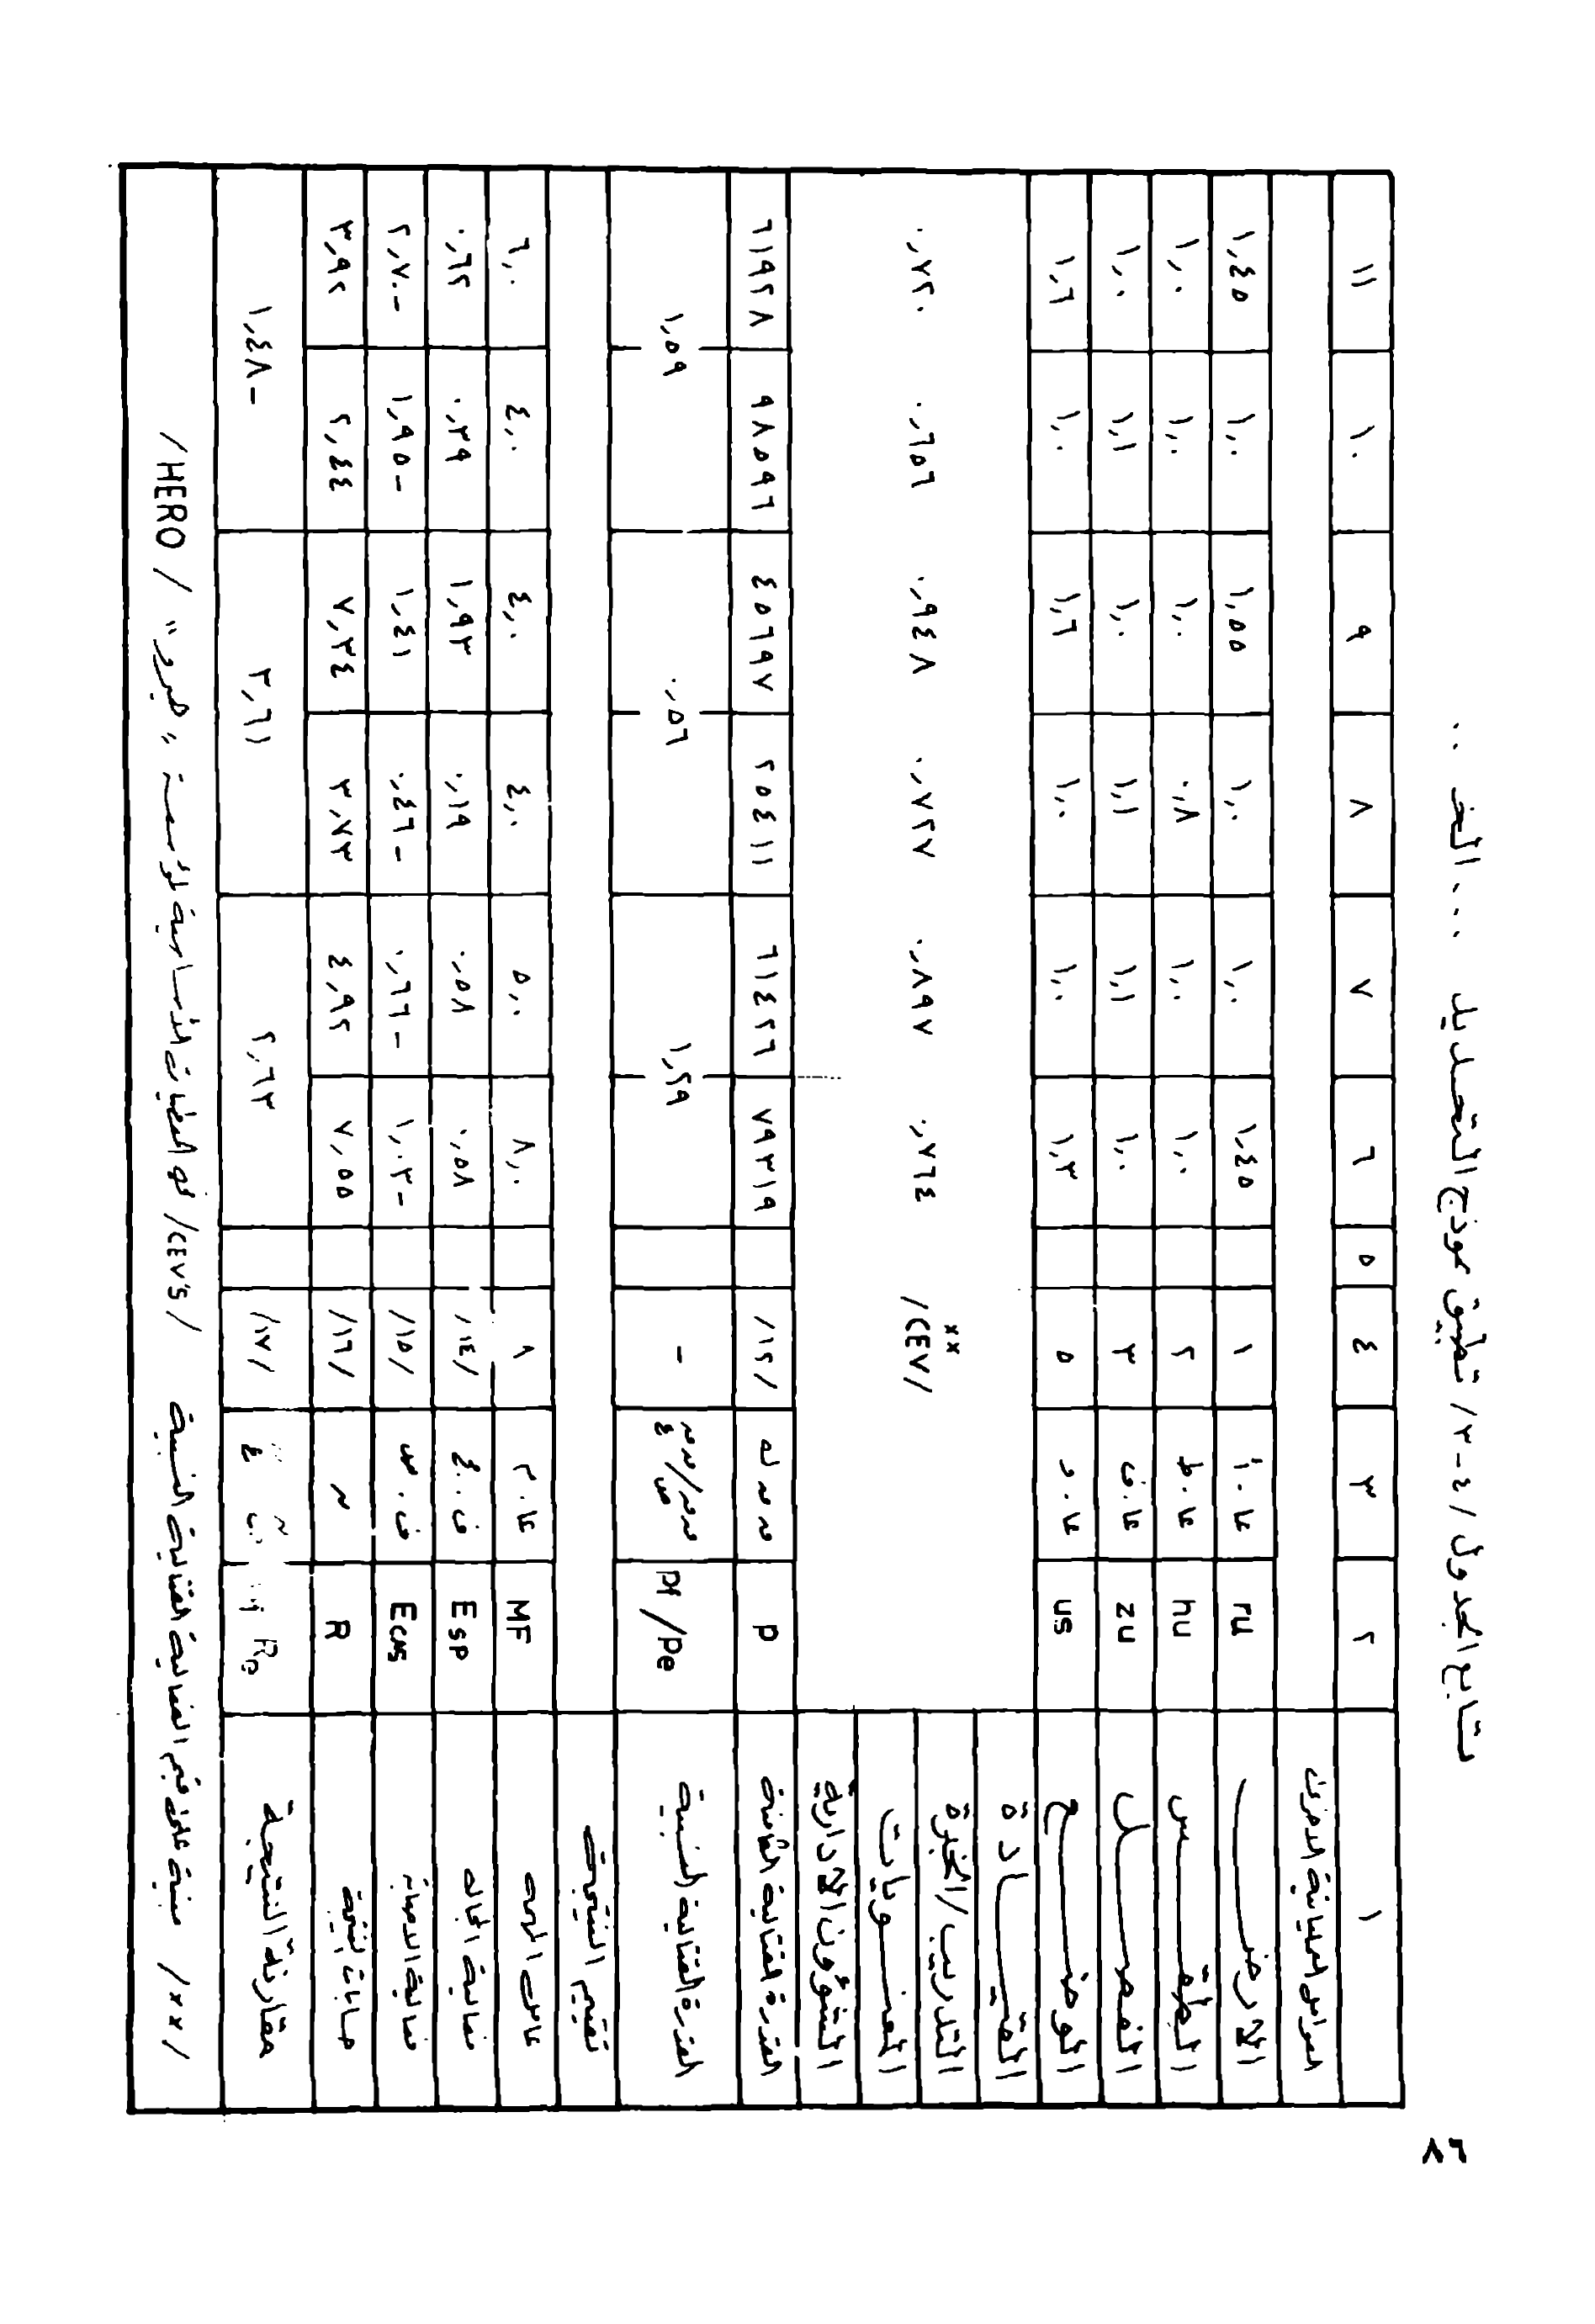 ٨٦
تابع الجدول /٤-٣/ تطبيق نموذج التحديد ... الخ ..
١ ٢ ٣ ٤ ٥ ٦ ٧ ٨ ٩ ١٠ ١١
العوامل الميدانية الاخرى
الارض ru عا.أ ١ ١,٤٥ ١,٠ ١,٠ ١,٥٥ ١,٠ ١,٤٥
الطقس hu عا.ط ٢ ١,٠ ١,٠ ٠,٨ ١,٠ ١,٠ ١,٠
الفصل zu عا.ف ٣ ١,٠ ١,١ ١,١ ١,٠ ١,١ ١,٠
الوضع us عا.و ٥ ١,٣ ١,٠ ١,٠ ١,٦ ١,٠ ١,٦
القيادة
التدريب/الخبرة ×× /CEV/ ٠,٧٦٤ ٠,٨٩٧ ٠,٧٢٧ ٠,٩٤٨ ٠,٦٥٦ ٠,٧٢٠
المعنويات
الشؤون الادارية
القدرة القتالية الكامنة P /١٢/ ٧٩٣١٩ ٦١٤٢٦ ٢٥٤١١ ٤٥٦٩٧ ٩٨٥٩٦ ٦١٩٢٨
القدرة القتالية النسبية Pf/Pe - ١,٢٩ ٠,٥٦ ١,٥٩
تقييم النتيجة
عامل المهمة MF عا.م ٨ ٨,٠ ٥,٠ ٤,٠ ٤,٠ ٤,٠ ٦,٠
فعالية المجال Esp ف.ع /١٤/ ٠,٥٨ ٠,٥٨ ٠,١٩ ١,٩٣ ٠,٣٩ ٠,٦٢
فعالية الاصابة Ecas ف.ص /١٥/ ١,٠٣- ٠,٦٦- ٠,٤٦- ١,٤١ ١,٩٥- ٢,٧٠-
حسابات النتيجة R ن /١٦/ ٧,٥٥ ٤,٩٢ ٣,٧٣ ٧,٣٤ ٢,٤٤ ٣,٩٢
مقارنة النتيجة /١٧/ ٢,٦٣ ٣,٦١ ١,٤٨-
/××/ مبنية على قيم الفعالية القتالية النسبية /CEV'S/ في المعطيات الأساسية لمؤسسة "هيرو" /HERO/